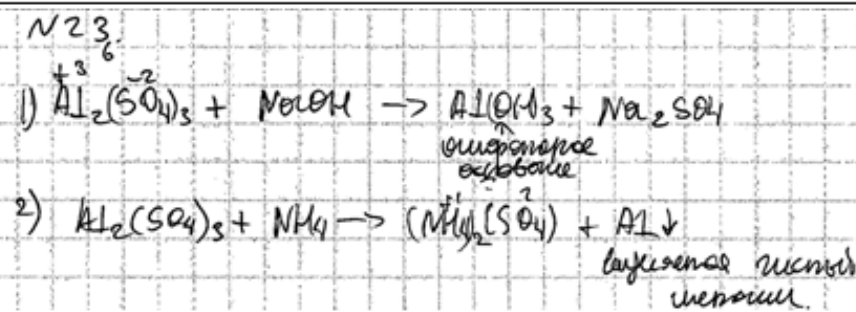 N 23
6.
+3 -2
1) Al₂(SO₄)₃ + NaOH –> Al(OH)₃ + Na₂SO₄
амфотерное
основание
+1 2
2) Al₂(SO₄)₃ + NH₄ –> (NH₄)₂(SO₄) + Al↓
выделяется чистый
металл.